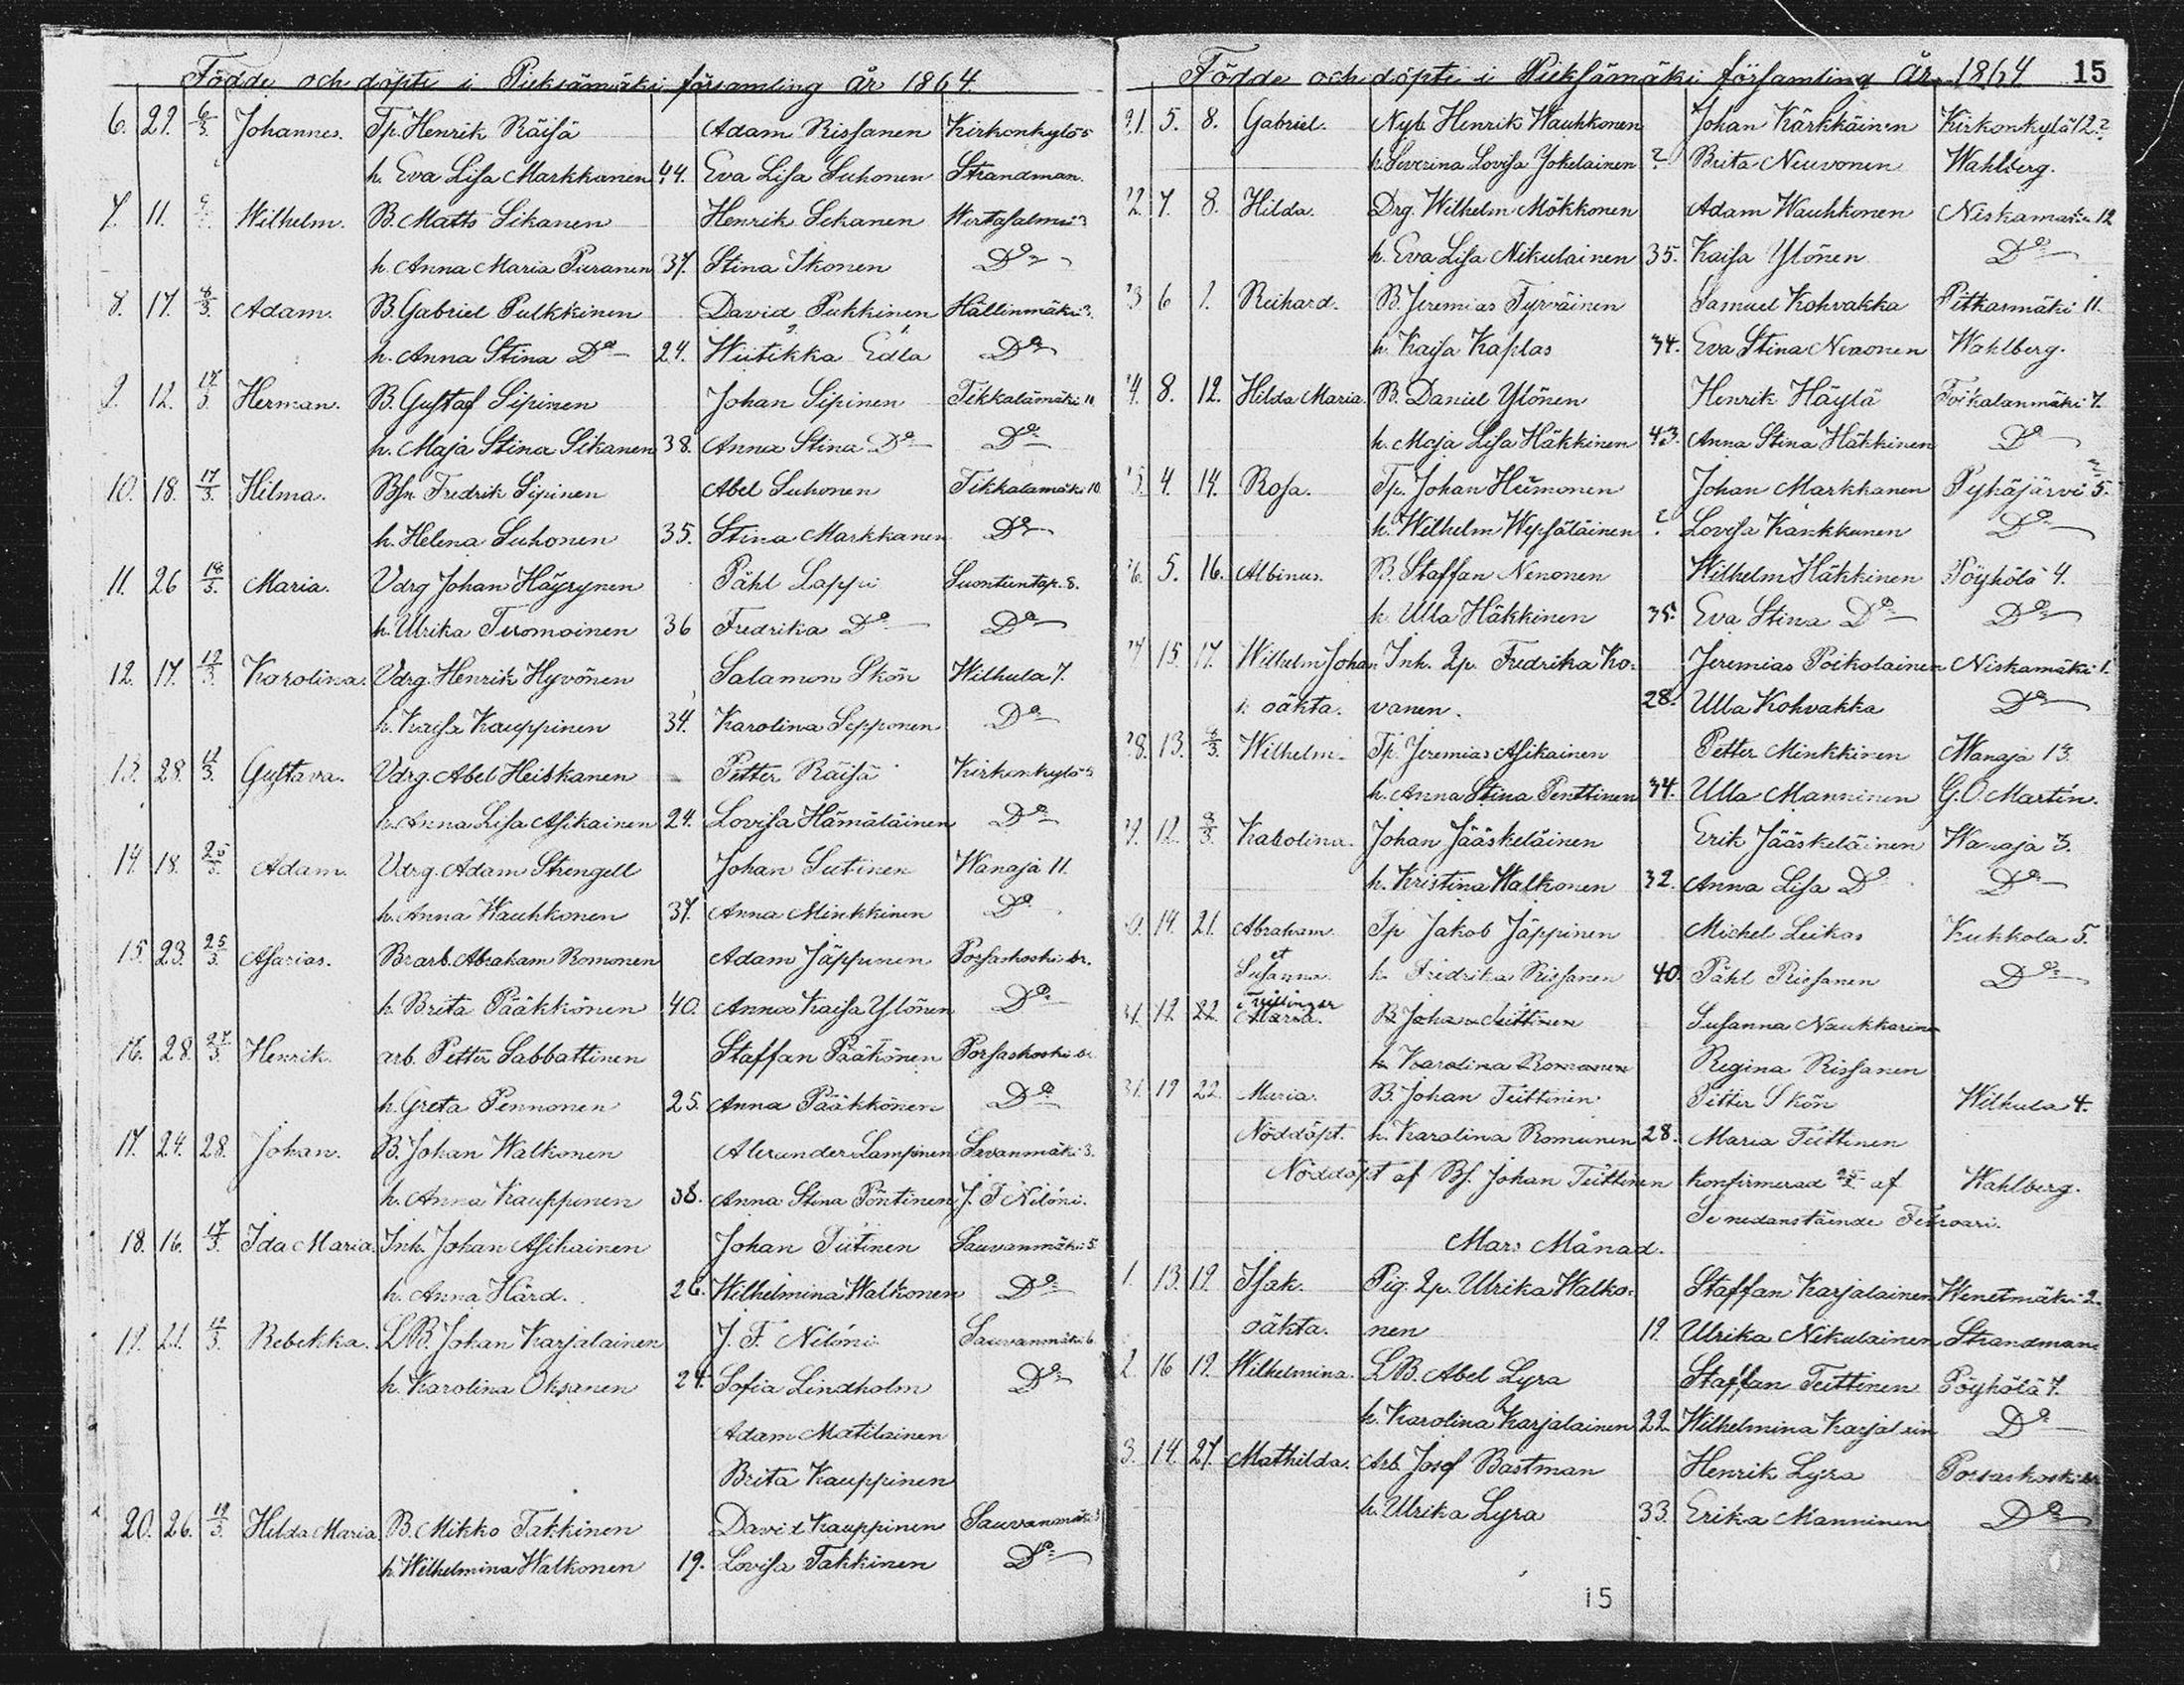 Födde och döpte i Pieksämäki församling år 1864
6. 29. 6/3. Johannes. Tp. Henrik Räisä Adam Rissanen Kirkonkylä 5
h. Eva Lisa Markkanen 44. Eva Lisa Suhonen Strandman.
7. 11. Wilhelm. B. Matts Sikanen Henrik Sikanen Wirtasalmi 3
h. Anna Maria Puranen 37. Stina Ikonen Do
8. 17. 8/3. Adam. B. Gabriel Pulkkinen David Pukkinen Hällinmäki 3.
h. Anna Stina Do 24. Wiitikka Edla Do
9. 12. 17/3. Herman. B. Gustaf Sipinen Johan Sipinen Tikkalämäki 11
h. Maja Stina Sikanen 38. Anna Stina Do Do
10. 18. 17/3. Hilma. Bsn. Fredrik Sipinen Abel Suhonen Tikkalamäki 10
h. Helena Suhonen 35. Stina Markkanen Do
11. 26 18/3. Maria. Vdrg Johan Häyrynen Påhl Lappi Suontientap. 8.
h. Ulrika Tuomainen 36 Fredrika Do Do
12. 17. 12/3. Karolina. Vdrg. Henrik Hyvönen Salamon Skön Wilhula 7.
h. Kaisa Kauppinen 34. Karolina Sepponen Do
13. 28. 12/3. Gustava. Vdrg. Abel Heiskanen Petter Räisä Kirkonkylö 5
h. Anna Lisa Asikainen 24. Lovisa Hämäläinen Do
14. 18. 25/3. Adam. Vdrg. Adam Strengell Johan Sutinen Wanaja 11.
h. Anna Wauhkonen 37. Anna Minkkinen Do
15. 23. 25/3. Asarias. Brarb. Abraham Romonen Adam Jäppinen Porsaskoski br.
h. Brita Pääkkönen 40. Anna Kaisa Ylönen Do
16. 28. 27/3. Henrik. arb. Petter Sabbattinen Staffan Pääkönen Porsaskoski br.
h. Greta Pennonen 25. Anna Pääkkönen Do
17. 24. 28. Johan. B. Johan Walkonen Alexander Lampinen Savanmäki 3.
h. Anna Kauppinen 38. Anna Stina Pöntinen J. F Nilóni.
18. 16. 17/3. Ida Maria. Inh. Johan Asikainen Johan Tiitinen Sauvanmäki 5
h. Anna Hård. 26. Wilhelmina Walkonen Do
19. 21. 12/3. Rebekka. LB. Johan Karjalainen J. F. Nilóni Sauvanmäki 6
h. Karolina Oksanen 24. Sofia Lindholm Do
Adam Matilainen
Brita Kauppinen
20. 26. 19/3. Hilda Maria B. Mikko Takkinen David Kauppinen Sauvanmäki 3
h. Wilhelmina Walkonen 19. Lovisa Takkinen Do
Födde och döpte i Pieksämäki församling År 1864. 15
21. 5. 8. Gabriel. Nyb. Henrik Wauhkonen Johan Kärkkäinen Kirkonkylä 12 ?
h. Severina Lovisa Jokelainen ? Brita Neuvonen Wahlberg.
22. 7. 8. Hilda. Drg. Wilhelm Mökkonen Adam Wauhkonen Niskamäki 12
h. Eva Lisa Nikulainen 35. Kaisa Ylönen Do
23 6 1. Reihard. B. Jeremias Tyrväinen Samuel Kohvakka Pitkanmäki 11.
h. Kaisa Kaplas 34. Eva Stina Nenonen Wahlberg.
24. 8. 12. Hilda Maria. B. Daniel Ylönen Henrik Häylä Toikalanmäki 7.
h. Maja Lisa Häkkinen 43. Anna Stina Häkkinen Do
25. 4. 14. Rosa. Tp. Johan Heimonen Johan Markkanen Pyhäjärvi 5.
h. Wilhelm Wepsäläinen ? Lovisa Kankkunen Do
26. 5. 16. Albinus. B. Staffan Nenonen Wilhelm Häkkinen Pöyhölä 4.
h. Ulla Häkkinen 35. Eva Stina Do Do
27. 15. 17. Wilhelm Johan Inh. Qp. Fredrika Ko- Jeremias Poikolainen Niskamäki 1.
oäkta. vanen. 28. Ulla Kohvakka Do
28. 13. 8/3. Wilhelm. Tp. Jeremias Asikainen Petter Minkkinen Wanaja 13.
h. Anna Stina Penttinen 34. Ulla Manninen G. O. Martin.
29. 12. 8/3. Karolina. Johan Jääskeläinen Erik Jääskeläinen Wanaja 3.
h. Kristina Walkonen 32. Anna Lisa Do Do
30. 14. 21. Abraham Tp Jakob Jäppinen Michel Leikas Kukkola 5.
et Susanna. h. Fredrika Rissanen 40. Påhl Rissanen Do
Tvillingar
31. 12 22. Maria. B Johan Teittinen Susanna Naukkarinen
h Karolina Romanen Regina Rissanen
31. 19 22. Maria. B. Johan Teittinen Petter Skön Wilhula 4.
Nöddöpt. h. Karolina Romunen 28. Maria Teittinen
Nöddöpt af Bf. Johan Teittinen Konfirmerad 25/2 af Wahlberg.
Se nedanstående Februari.
Mars Månad.
1. 13. 19. Isak. Pig. Qp. Ulrika Walko- Staffan Karjalainen Wenetmäki 2.
oäkta. nen 19. Ulrika Nikulainen Strandman
2. 16 19. Wilhelmina. LB. Abel Lyra Staffan Teittinen Pöyhölä 7.
h. Karolina Karjalainen 22. Wilhelmina Karjalain Do
3. 14. 27. Mathilda. Arb. Josef Bastman Henrik Lyra Porsaskoski br
h. Ulrika Lyra 33. Erika Manninen Do
15